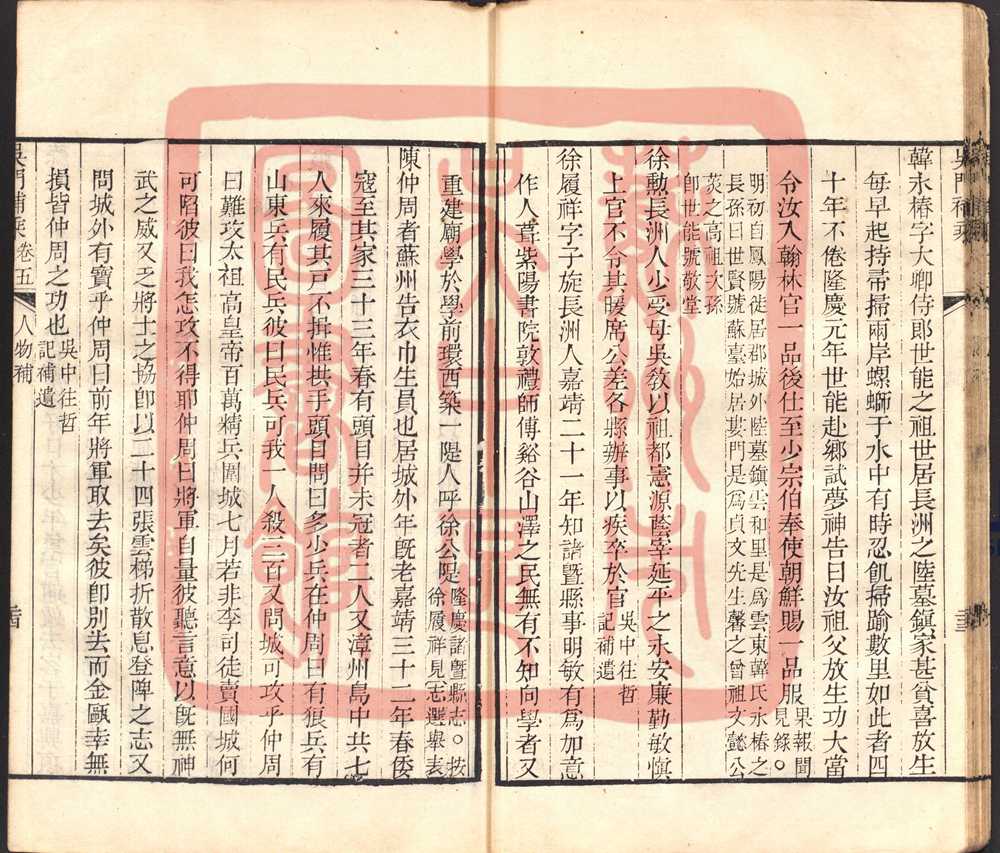 韓永椿字大卿侍郎世能之祖世居長洲之陸墓鎮家甚貧喜放生
每早起持帚掃兩岸螺螄于水中有時忍飢掃踰數里如此者四
十年不倦隆慶元年世能赴鄉試夢神告曰汝祖父放生功大當
令汝入翰林官一品後仕至少宗伯奉使朝鮮賜一品服果報聞見錄。
明初自鳳陽徙居郡城外陸墓鎮雲和里是爲雲東韓氏永椿之
長孫曰世賢號蘇臺始居婁門是爲貞文先生馨之曾祖文懿公
菼之高祖次孫
卽世能號敬堂
徐勲長洲人少受母吳教以祖都憲源蔭宰延平之永安廉勤敏慎
上官不令其暖席公差各縣辦事以疾卒於官吳中往哲記補遺
徐履祥字子旋長洲人嘉靖二十一年知諸暨縣事明敏有爲加意
作人葺紫陽書院敦禮師傅谿谷山澤之民無有不知向學者又
重建廟學於學前環西築一隄人呼徐公隄隆慶諸暨縣志。按徐履祥見志選舉表
陳仲周者蘇州告衣巾生員也居城外年旣老嘉靖三十二年春倭
寇至其家三十三年春有頭目并未冠者二人又漳州島中共七
人來履其戸不揖惟拱手頭目問曰多少兵在仲周曰有狼兵有
山東兵有民兵彼曰民兵可我一人殺三百又問城可攻乎仲周
曰難攻太祖高皇帝百萬精兵圍城七月若非李司徒賣國城何
可陷彼曰我怎攻不得耶仲周曰將軍自量彼聽言意以旣無神
武之威又乏將士之協卽以二十四張雲梯折散息登陴之志又
問城外有寶乎仲周曰前年將軍取去矣彼卽別去而金甌幸無
損皆仲周之功也吳中往哲記補遺
吳門補乘 卷五 人物補